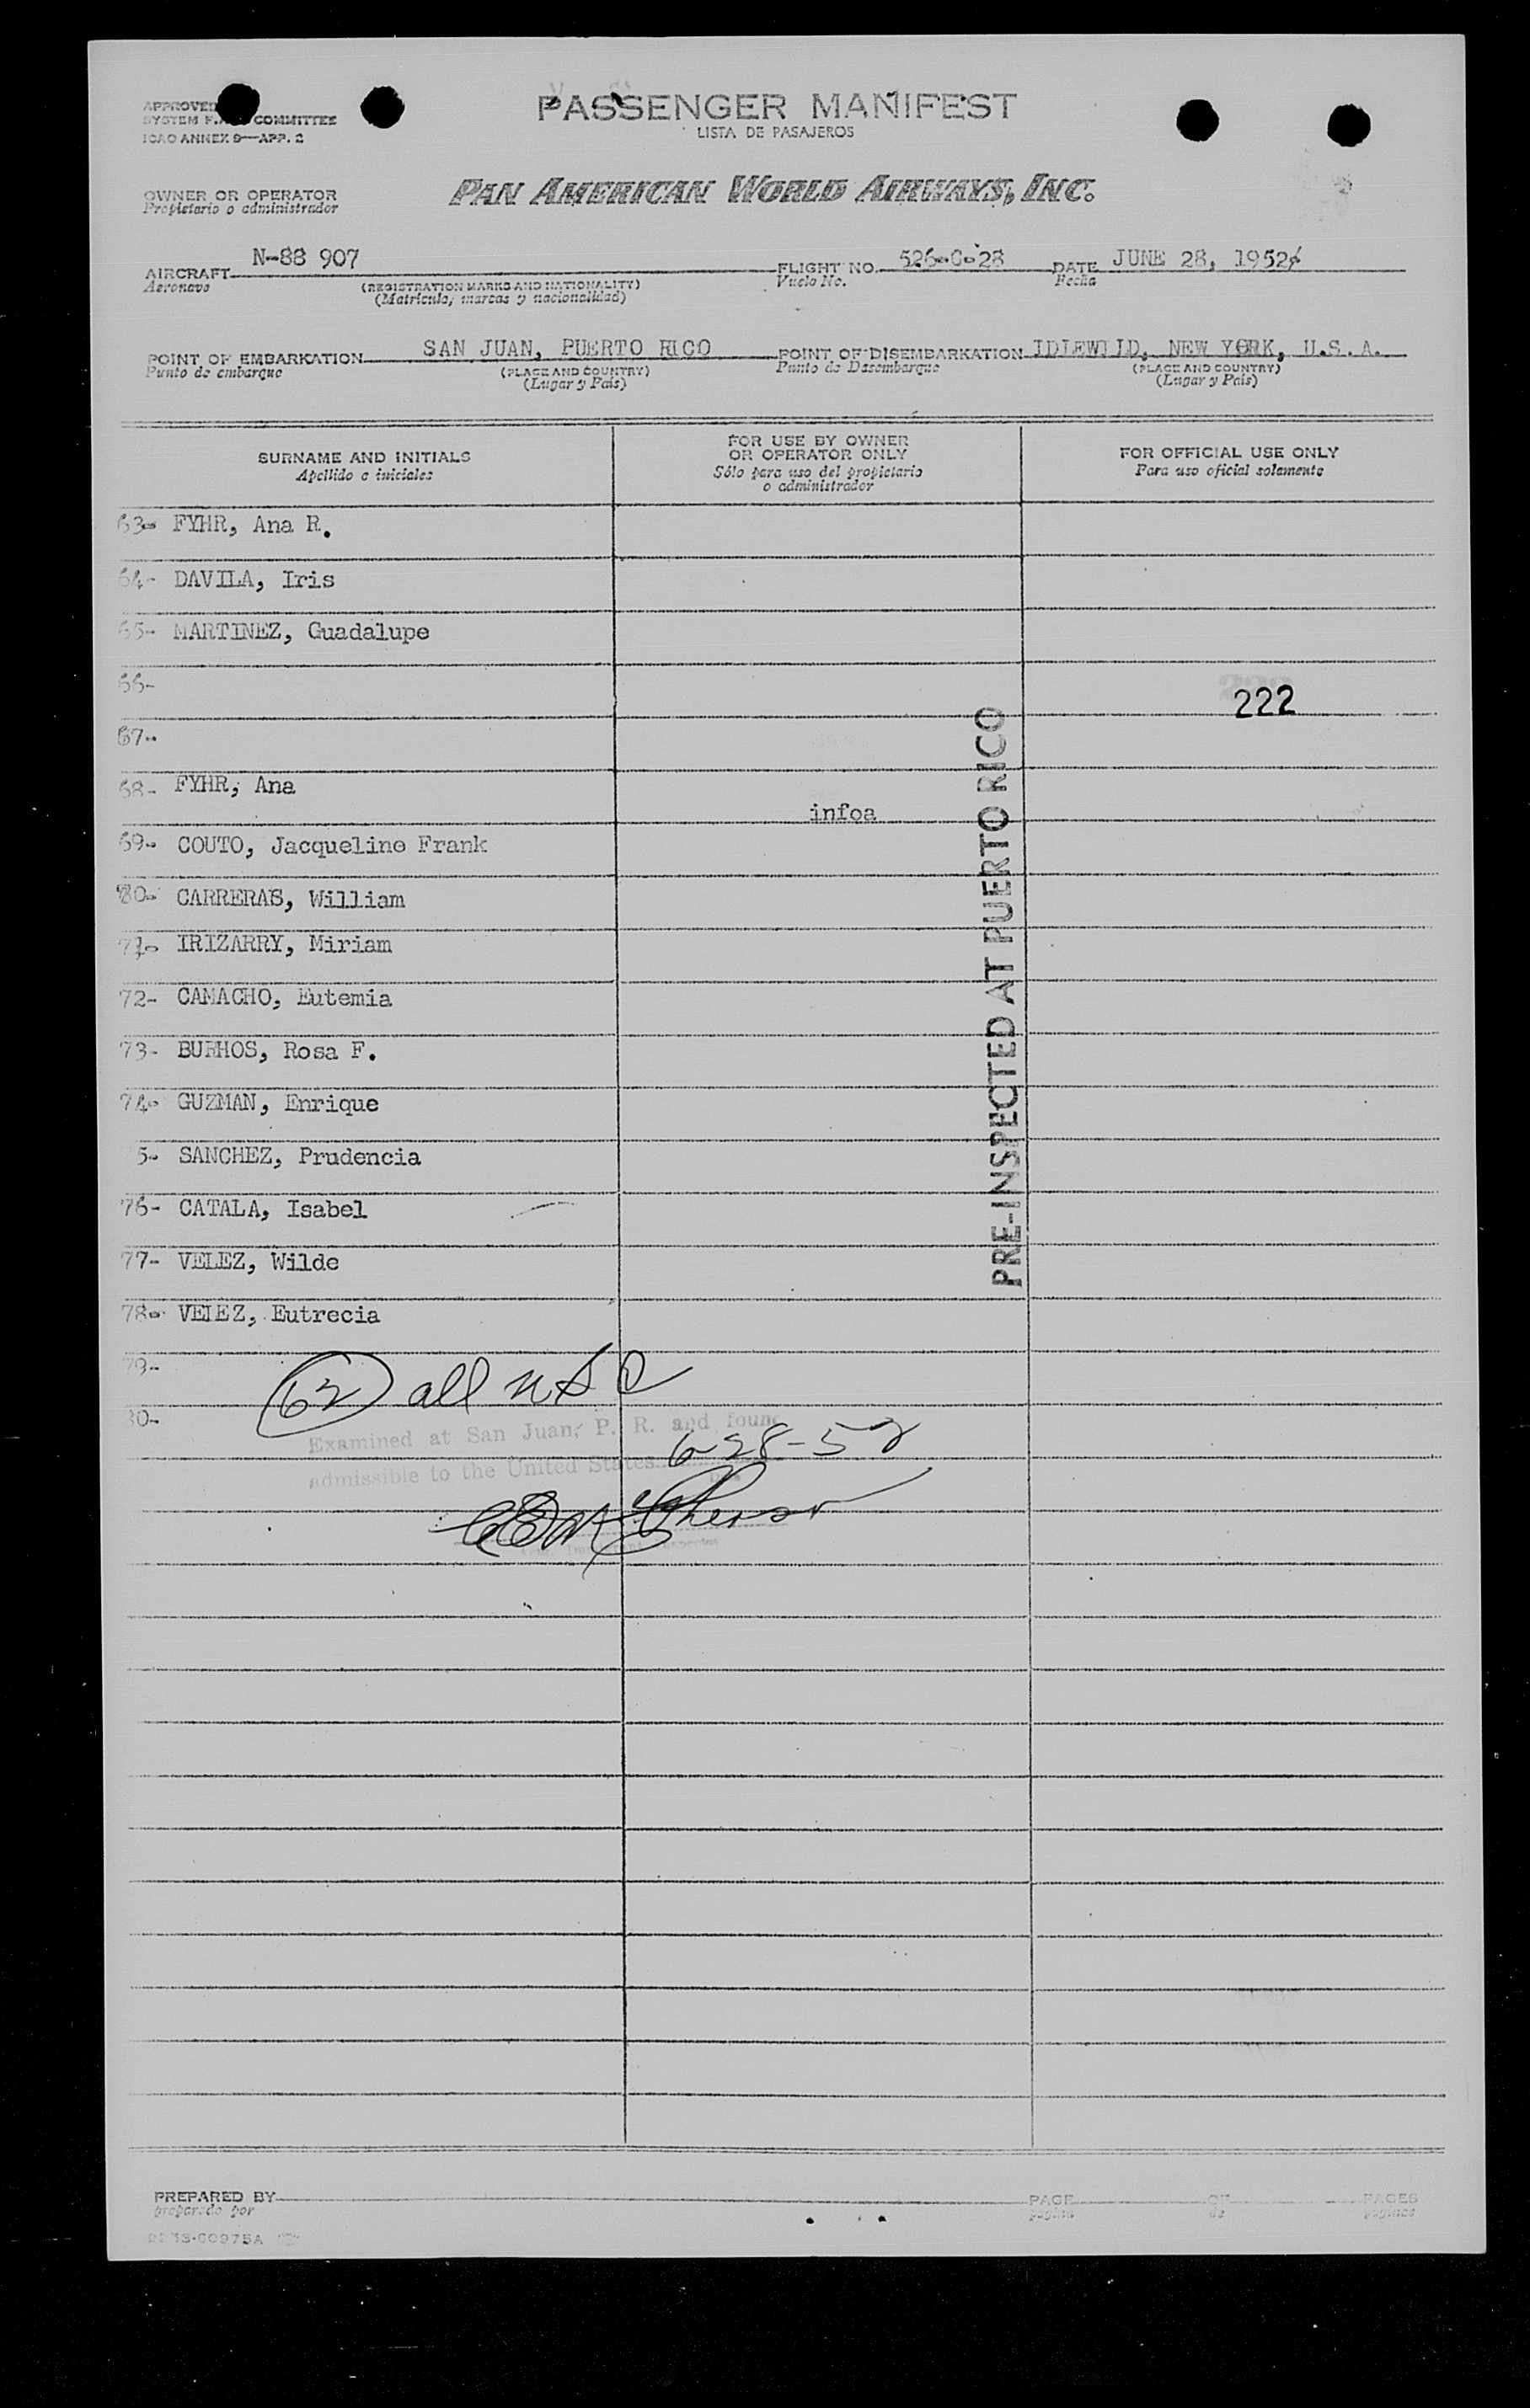 APPROVED
SYSTEM F.A. COMMITTEE
ICAO ANNEX 9—APP. 2
PASSENGER MANIFEST
LISTA DE PASAJEROS
OWNER OR OPERATOR
Propietario o administrador
PAN AMERICAN WORLD AIRWAYS, INC.
AIRCRAFT N-88 907 FLIGHT NO. 526-C-28 DATE JUNE 28, 1952
Aeronave (REGISTRATION MARKS AND NATIONALITY) Vuelo No. Fecha
(Matricula, marcas y nacionalidad)
POINT OF EMBARKATION SAN JUAN, PUERTO RICO POINT OF DISEMBARKATION IDLEWILD, NEW YORK, U.S.A.
Punto de embarque (PLACE AND COUNTRY) Punto de Desembarque (PLACE AND COUNTRY)
(Lugar y País) (Lugar y País)
SURNAME AND INITIALS
Apellido e iniciales
FOR USE BY OWNER
OR OPERATOR ONLY
Sólo para uso del propietario
o administrador
FOR OFFICIAL USE ONLY
Para uso oficial solamente
63- FYHR, Ana R.
64- DAVILA, Iris
65- MARTINEZ, Guadalupe
66-
222
67-
68- FYHR, Ana
infoa
69- COUTO, Jacqueline Frank
80- CARRERAS, William
71- IRIZARRY, Miriam
72- CAMACHO, Eutemia
73- BURHOS, Rosa F.
74- GUZMAN, Enrique
5- SANCHEZ, Prudencia
76- CATALA, Isabel
77- VELEZ, Wilde
78- VELEZ, Eutrecia
79-
PRE-INSPECTED AT PUERTO RICO
62 all USC
80-
Examined at San Juan, P. R. and found
admissible to the United States 6-28-52
PREPARED BY PAGE OF PAGES
preparado por página de páginas